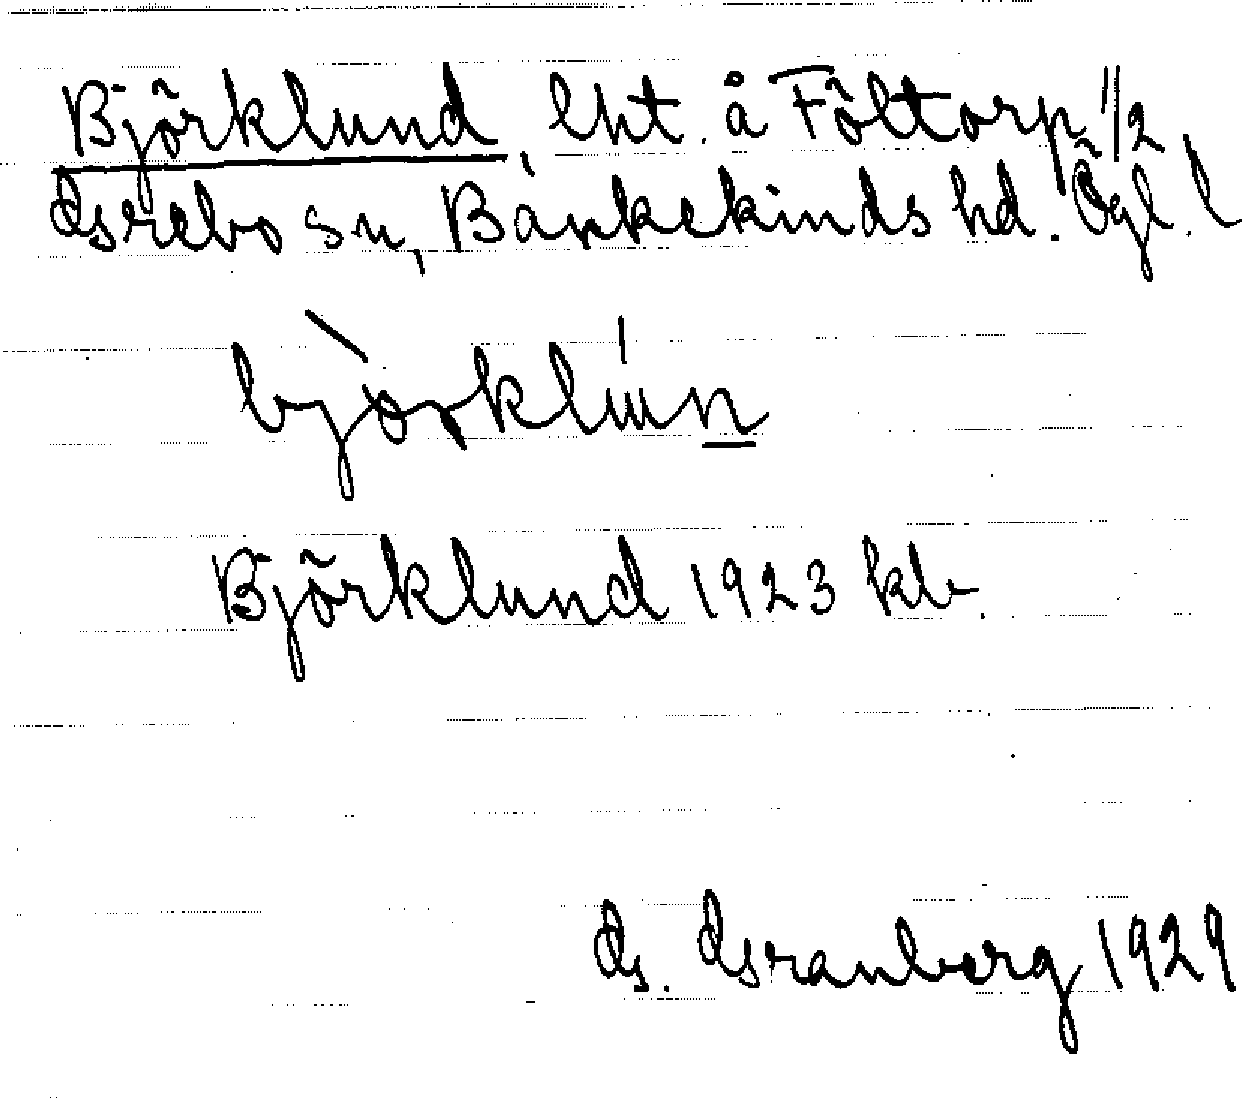 Björklund, lht. å Föltorp 1/2
Grebo sn, Bankekinds hd. Ögl. l
bjòrklún
Björklund 1923 kb.
G. Granberg 1929